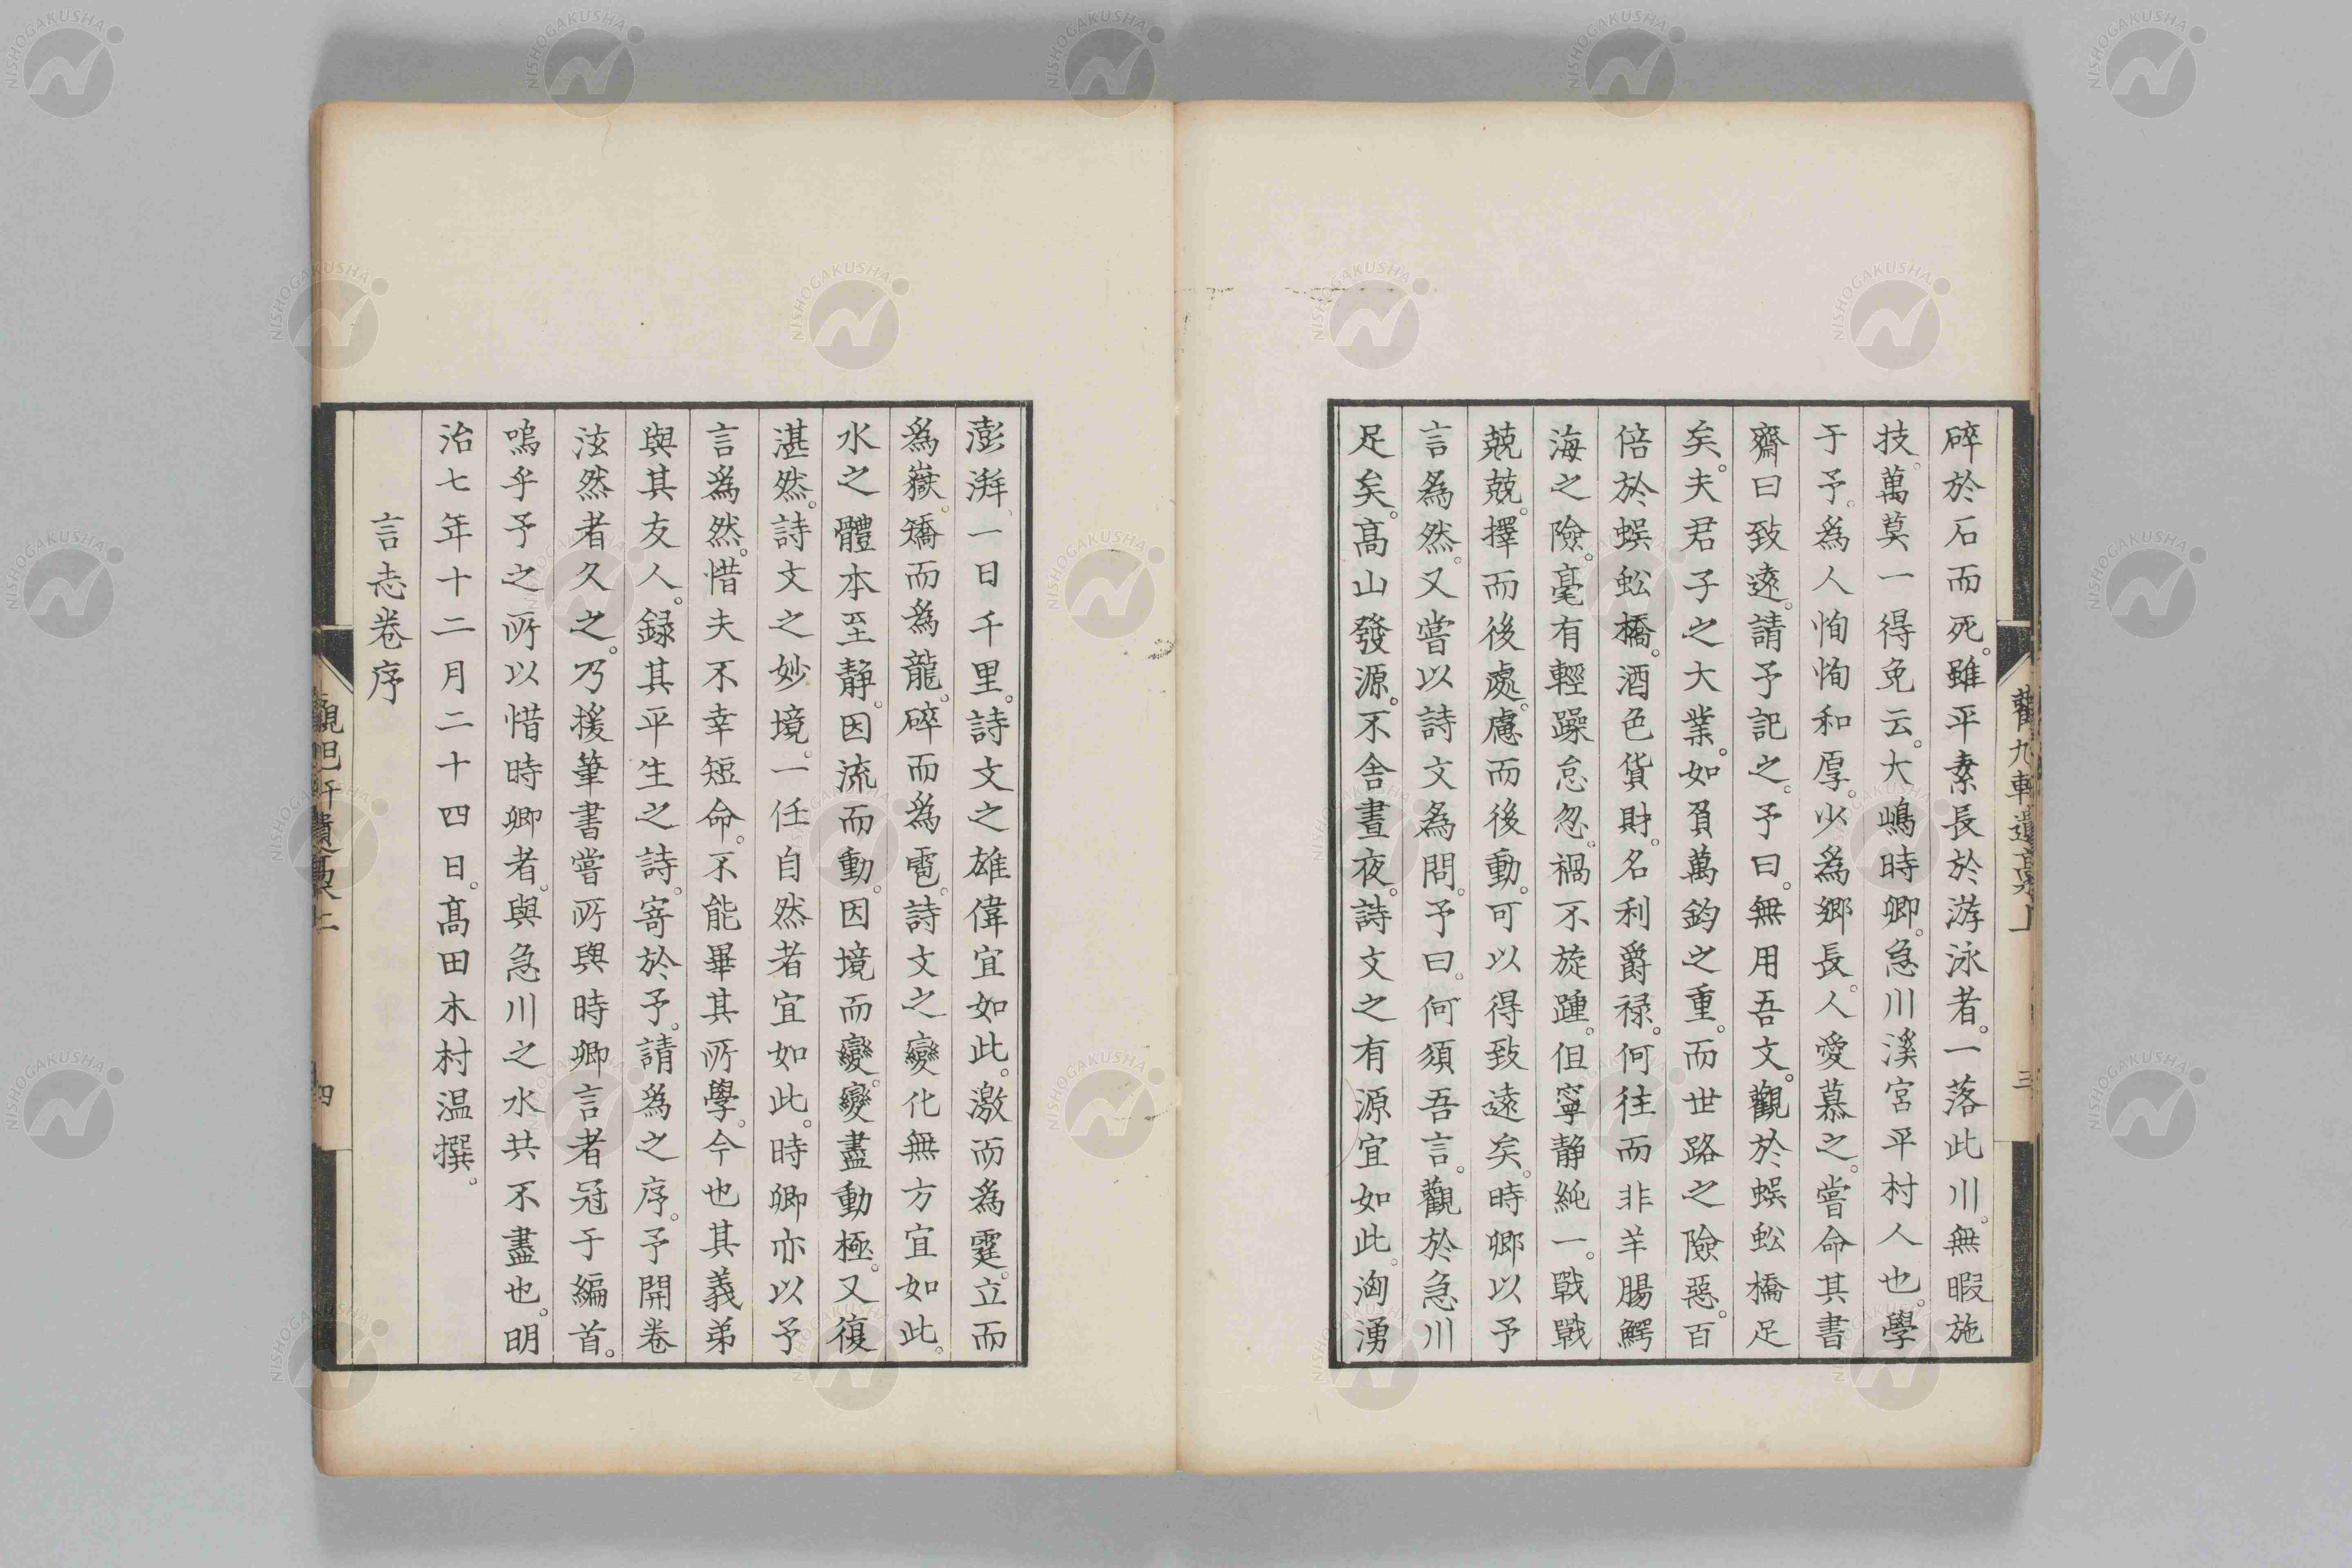 碎於石而死。雖平素長於游泳者。一落此川。無暇施
技。萬莫一得免云。大嶋時卿。急川溪宮平村人也。學
于予。為人恂恂和厚。少為鄉長。人愛慕之。嘗命其書
齋曰致遠。請予記之。予曰。無用吾文。觀於蜈蚣橋足
矣。夫君子之大業。如負萬鈞之重。而世路之險惡。百
倍於蜈蚣橋。酒色貨財。名利爵禄。何往而非羊腸鰐
海之險。毫有輕躁怠忽。禍不旋踵。但寧静純一。戰戰
兢兢。擇而後處。慮而後動。可以得致遠矣。時卿以予
言為然。又嘗以詩文為問。予曰。何須吾言。觀於急川
足矣。高山發源。不舍晝夜。詩文之有源宜如此。洶湧
澎湃、一日千里。詩文之雄偉宜如此。激而為霆。立而
為嶽。矯而為龍。碎而為雹。詩文之變化無方宜如此。
水之體本至静。因流而動。因境而變。變盡動極。又復
湛然。詩文之妙境。一任自然者宜如此。時卿亦以予
言為然。惜夫不幸短命。不能畢其所學。今也其義弟
與其友人。録其平生之詩。寄於予。請為之序。予開卷
泫然者久之。乃援筆書嘗所與時卿言者冠于編首。
嗚乎予之所以惜時卿者。與急川之水共不盡也。明
治七年十二月二十四日。髙田木村温撰。
言志卷序